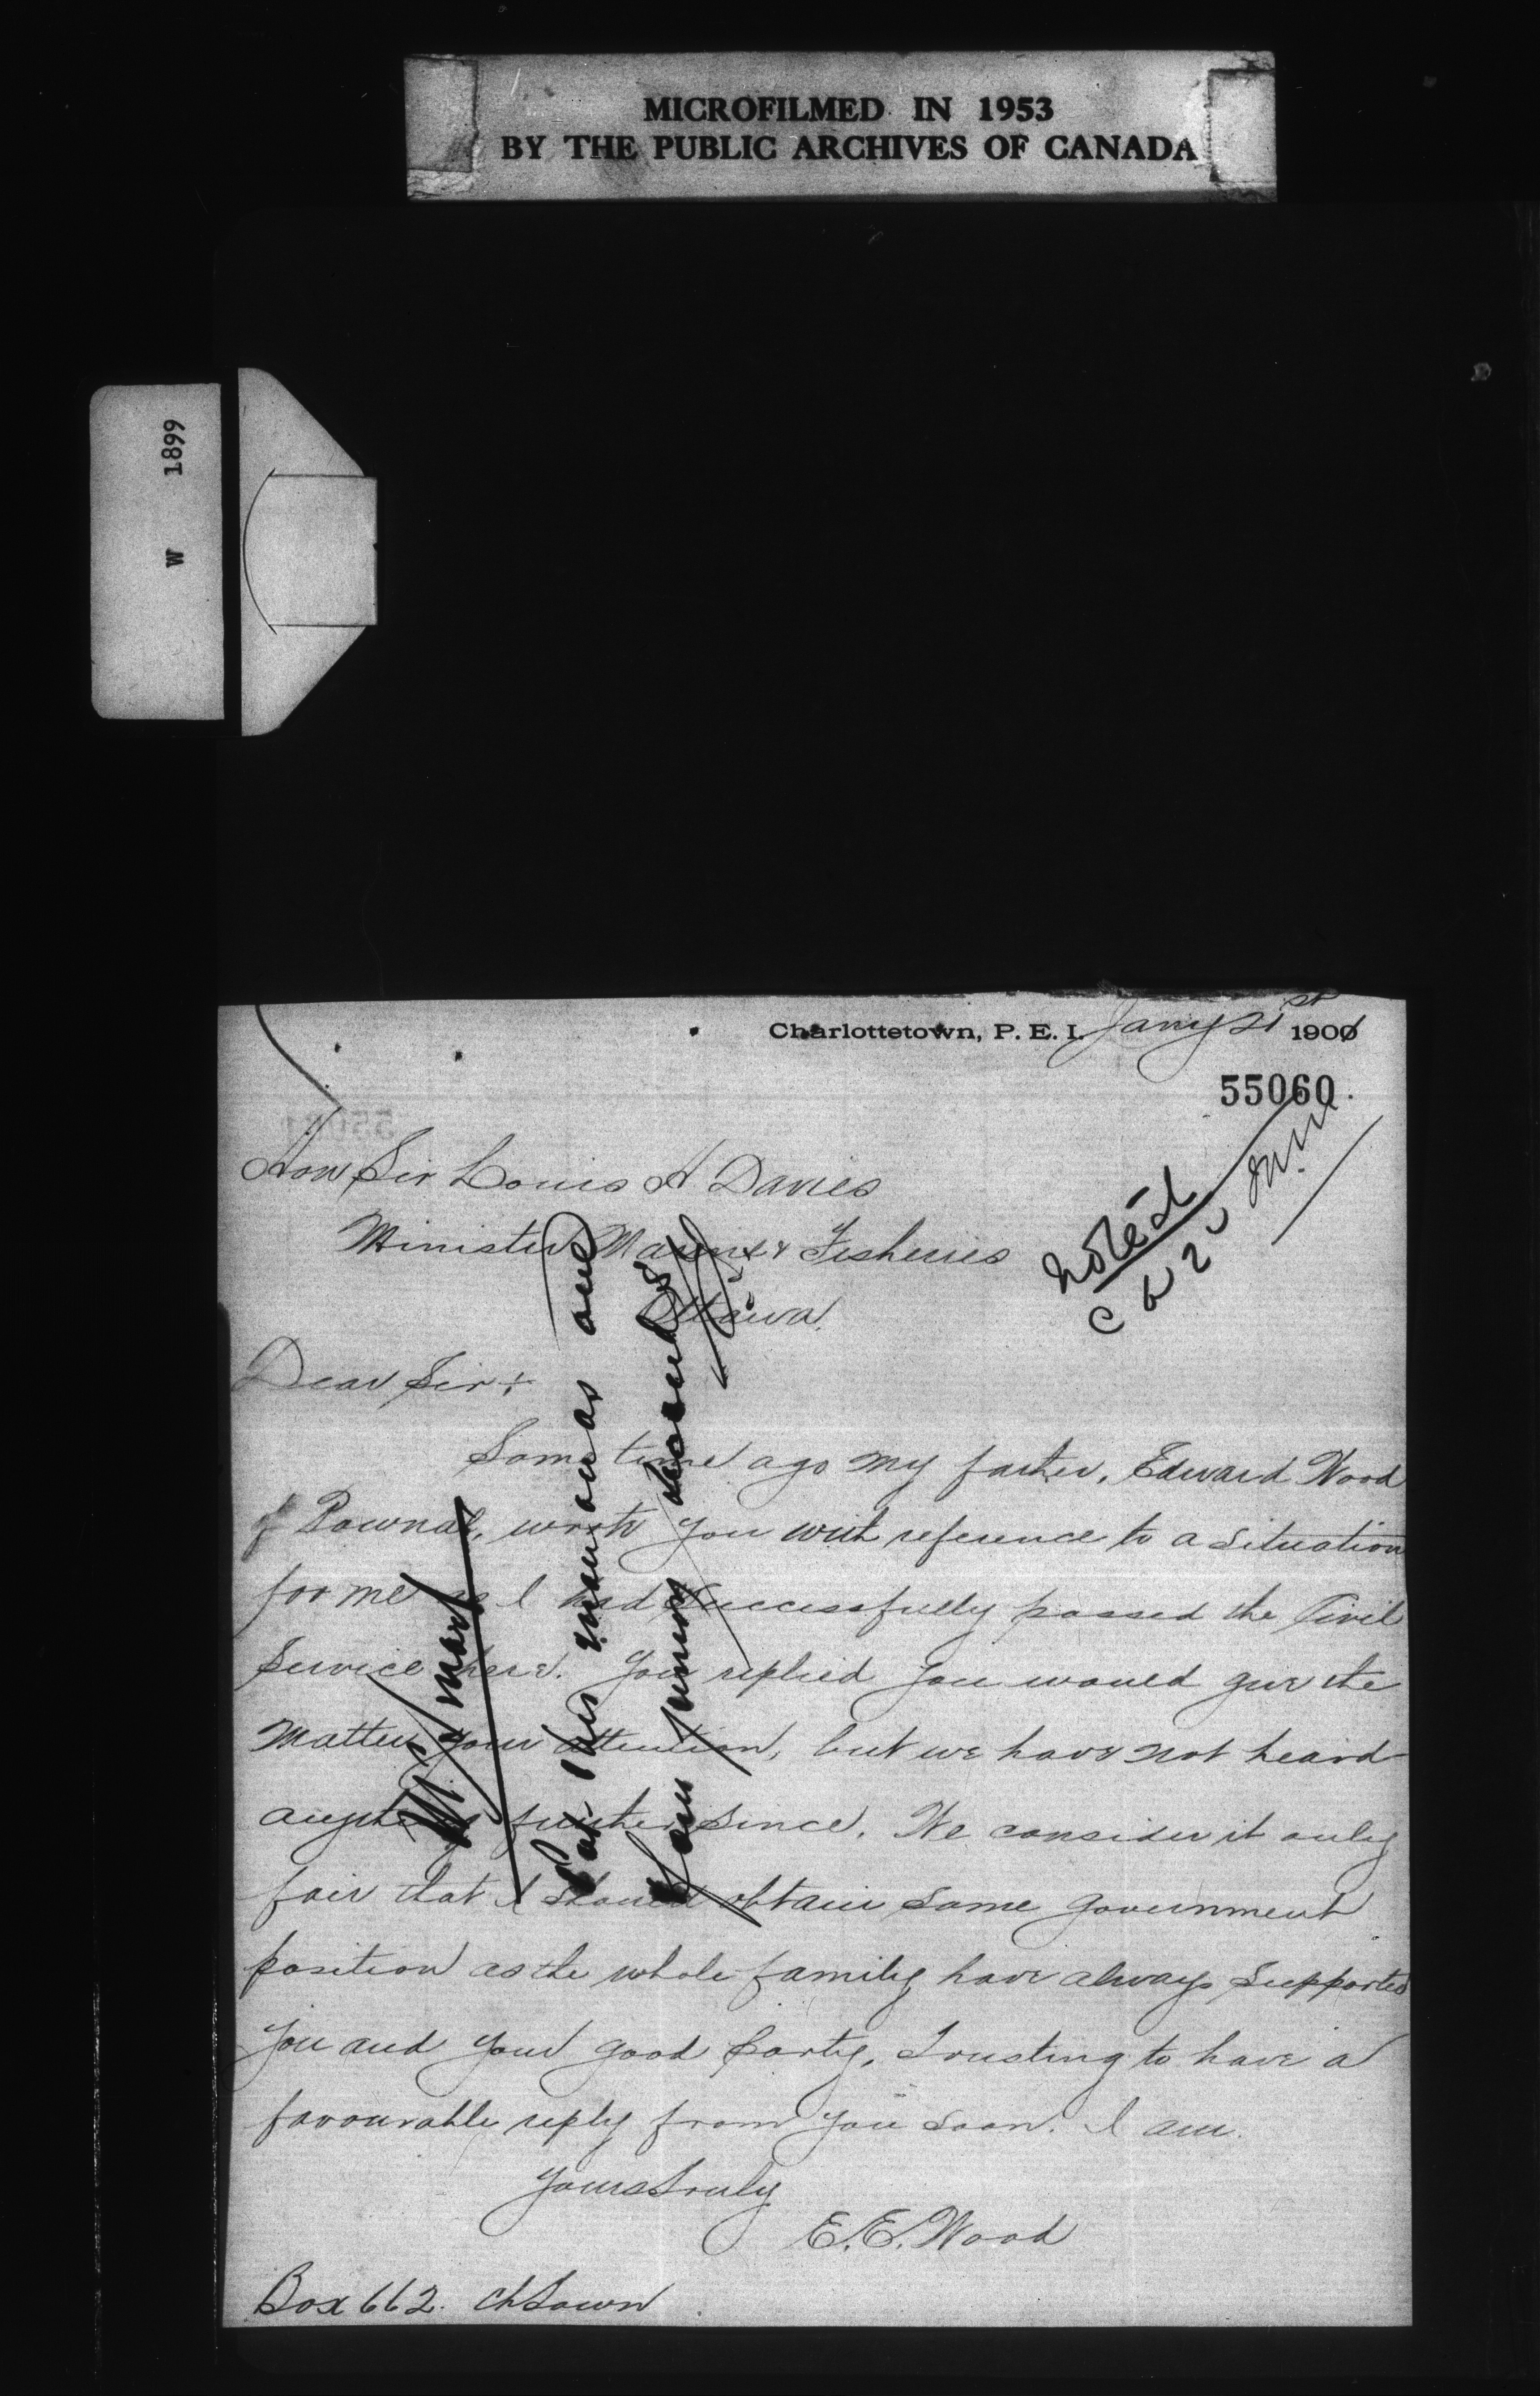 MICROFILMED IN 1953
BY THE PUBLIC ARCHIVES OF CANADA
W 1899
Charlottetown, P. E. I. Jany 21st 1900
55060
noted
Hon Sir Louis H Davies
Minister Marine & Fisheries
Ottawa.
Dear Sir:
Some time ago my father, Edward Wood
of Pownal, wrote you with reference to a situation
for me as I had successfully passed the Civil
Service here. You replied you would give the
matter your attention, but we have not heard
anything further since. We consider it only
fair that I should obtain some government
position as the whole family have always supported
you and your good party, Trusting to have a
favourable reply from you soon. I am.
Yours truly
E. E. Wood
Box 662. ChTown
Put this man on as one